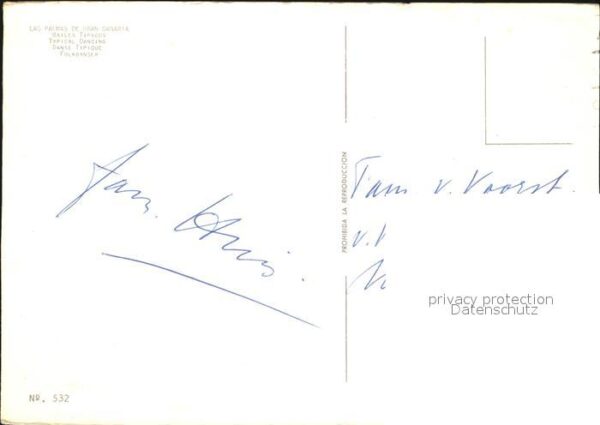 LAS PALMAS DE GRAN CANARIA
BAILES TIPICOS
TYPICAL DANCING
DANSE TYPIQUE
FOLKDANSER
Fam.
PROHIBIDA LA REPRODUCCION
Fam v. Voorst.
v.
privacy protection
Datenschutz
NR. 532